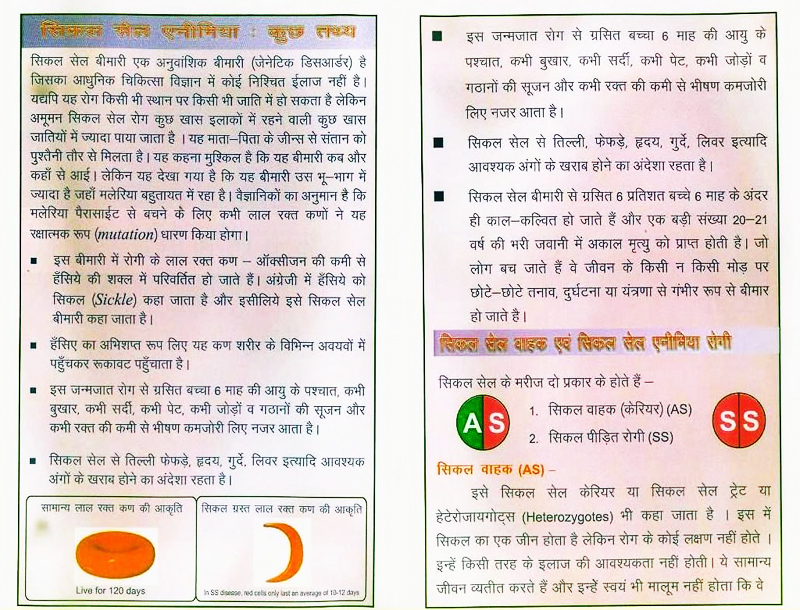 सिकल सेल एनीमिया : कुछ तथ्य
सिकल सेल बीमारी एक अनुवांशिक बीमारी (जेनेटिक डिसआर्डर) है
जिसका आधुनिक चिकित्सा विज्ञान में कोई निश्चित ईलाज नहीं है।
यद्यपि यह रोग किसी भी स्थान पर किसी भी जाति में हो सकता है लेकिन
अमूमन सिकल सेल रोग कुछ खास इलाकों में रहने वाली कुछ खास
जातियों में ज्यादा पाया जाता है । यह माता–पिता के जीन्स से संतान को
पुश्तैनी तौर से मिलता है। यह कहना मुश्किल है कि यह बीमारी कब और
कहाँ से आई। लेकिन यह देखा गया है कि यह बीमारी उस भू–भाग में
ज्यादा है जहाँ मलेरिया बहुतायत में रहा है। वैज्ञानिकों का अनुमान है कि
मलेरिया पैरासाईट से बचने के लिए कभी लाल रक्त कणों ने यह
रक्षात्मक रूप (mutation) धारण किया होगा।
■ इस बीमारी में रोगी के लाल रक्त कण – ऑक्सीजन की कमी से
हँसिये की शक्ल में परिवर्तित हो जाते हैं। अंग्रेजी में हँसिये को
सिकल (Sickle) कहा जाता है और इसीलिये इसे सिकल सेल
बीमारी कहा जाता है।
■ हँसिए का अभिशप्त रूप लिए यह कण शरीर के विभिन्न अवयवों में
पहुँचकर रूकावट पहुँचाता है।
■ इस जन्मजात रोग से ग्रसित बच्चा 6 माह की आयु के पश्चात, कभी
बुखार, कभी सर्दी, कभी पेट, कभी जोड़ों व गठानों की सूजन और
कभी रक्त की कमी से भीषण कमजोरी लिए नजर आता है।
■ सिकल सेल से तिल्ली फेफड़े, हृदय, गुर्दे, लिवर इत्यादि आवश्यक
अंगों के खराब होने का अंदेशा रहता है।
सामान्य लाल रक्त कण की आकृति
Live for 120 days
सिकल ग्रस्त लाल रक्त कण की आकृति
In SS disease, red cells only last an average of 10-12 days
■ इस जन्मजात रोग से ग्रसित बच्चा 6 माह की आयु के
पश्चात, कभी बुखार, कभी सर्दी, कभी पेट, कभी जोड़ों व
गठानों की सूजन और कभी रक्त की कमी से भीषण कमजोरी
लिए नजर आता है।
■ सिकल सेल से तिल्ली, फेफड़े, हृदय, गुर्दे, लिवर इत्यादि
आवश्यक अंगों के खराब होने का अंदेशा रहता है।
■ सिकल सेल बीमारी से ग्रसित 6 प्रतिशत बच्चे 6 माह के अंदर
ही काल–कल्वित हो जाते हैं और एक बड़ी संख्या 20–21
वर्ष की भरी जवानी में अकाल मृत्यु को प्राप्त होती है। जो
लोग बच जाते हैं वे जीवन के किसी न किसी मोड़ पर
छोटे–छोटे तनाव, दुर्घटना या यंत्रणा से गंभीर रूप से बीमार
हो जाते है।
सिकल सेल वाहक एवं सिकल सेल एनीमिया रोगी
सिकल सेल के मरीज दो प्रकार के होते हैं –
AS
1. सिकल वाहक (केरियर) (AS)
2. सिकल पीड़ित रोगी (SS)
SS
सिकल वाहक (AS) –
इसे सिकल सेल केरियर या सिकल सेल ट्रेट या
हेटेरोजायगोट्स (Heterozygotes) भी कहा जाता है । इस में
सिकल का एक जीन होता है लेकिन रोग के कोई लक्षण नहीं होते ।
इन्हें किसी तरह के इलाज की आवश्यकता नहीं होती। ये सामान्य
जीवन व्यतीत करते हैं और इन्हें स्वयं भी मालूम नहीं होता कि वे